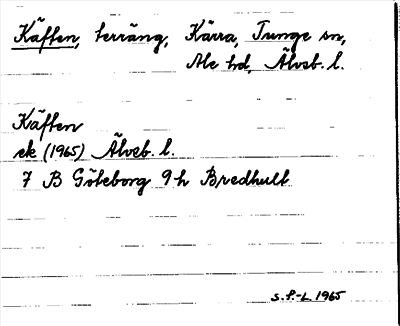 Käften, terräng, Kärra, Tunge sn,
Ale hd, Älvsb. l.
Käften
ek (1965) Älvsb. l.
7 B Göteborg 9 h Bredhult
S.F.-L. 1965